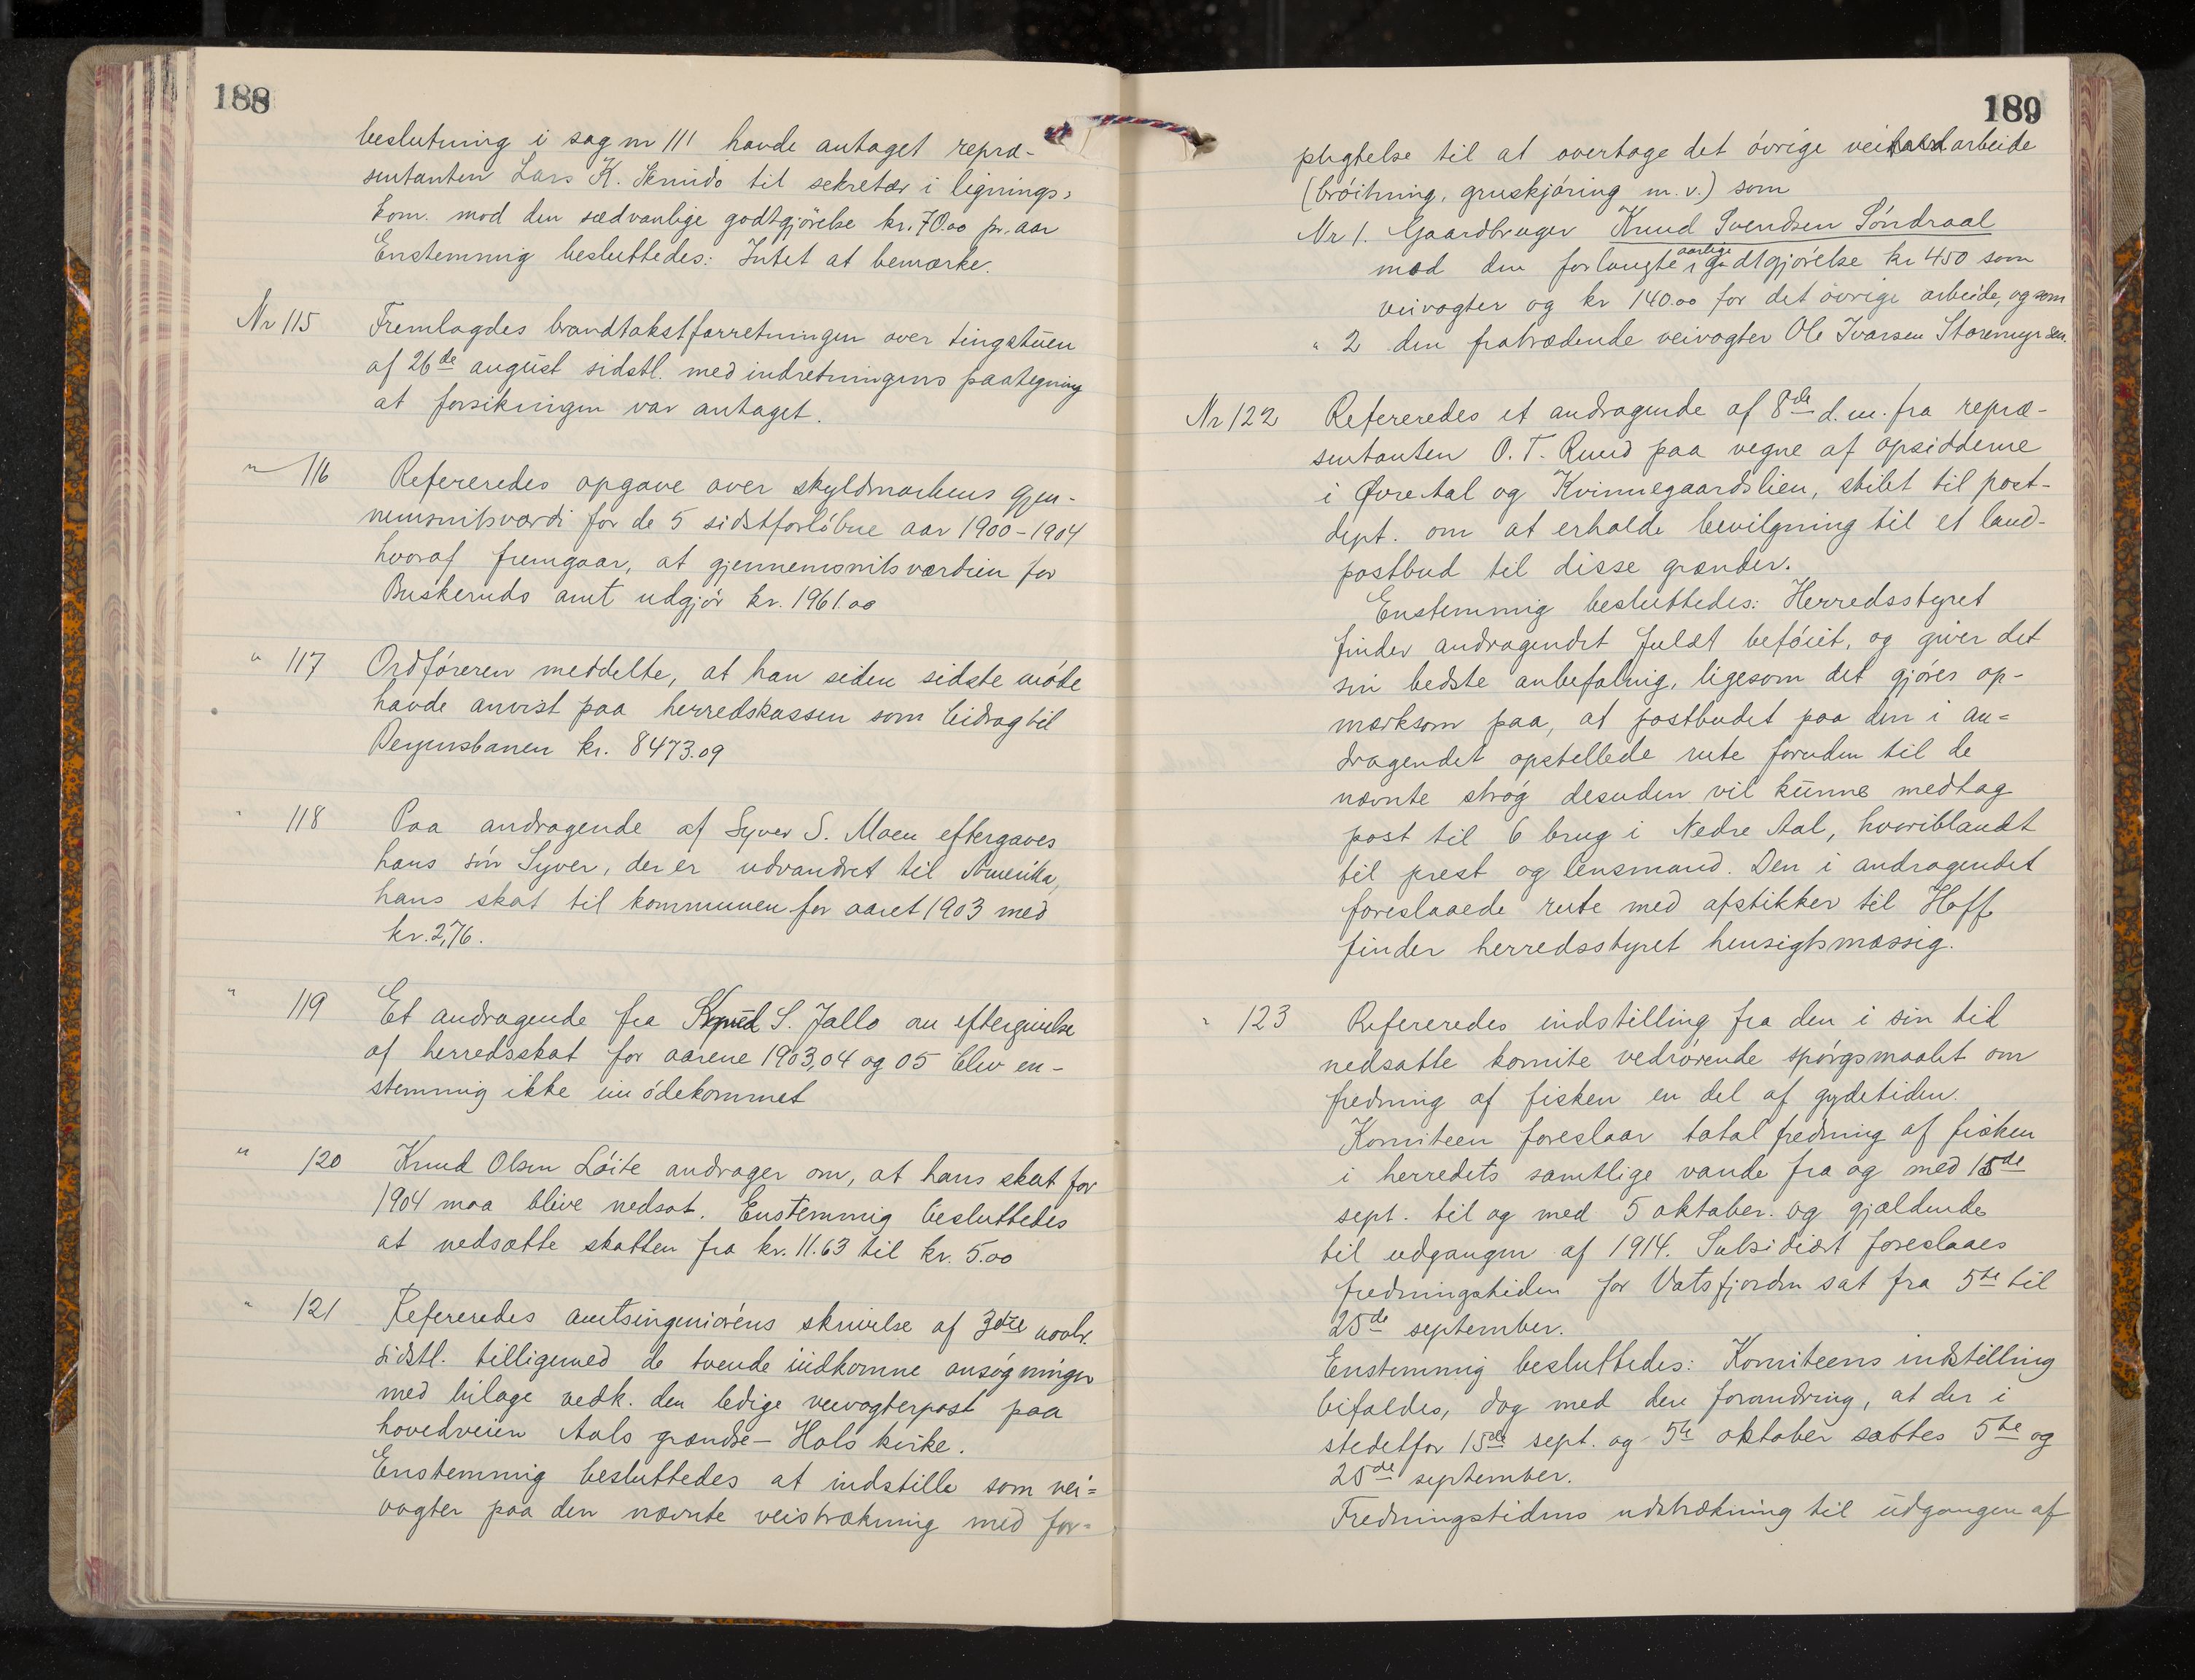 188
beslutning i sag nr 111 havde antaget repræ-
sentanten Lars K. til sekretær i lignings-
kom. mod den sædvanlige godtgjörelse kr. 70.00 pr. aar
Enstemmig besluttedes: Intet at bemærke.
Nr 115 Fremlagdes brandtakstforretningen over tingstuen
af 26de august sidstl. med indretningens paategning
at forsikringen var antaget.
" 116 Refereredes opgave over skyldmarkens gjen-
nemsnitsværdi for de 5 sidstforløbne aar 1900-1904
hvoraf fremgaar, at gjennemsnitsværdien for
Buskeruds amt udgjör kr. 1961.00
" 117 Ordföreren meddelte, at han siden sidste möde
havde anvist paa herredskassen som bidrag til
Bergensbanen kr. 8473.09
" 118 Paa andragende af Syver S. Moen eftergaves
hans sön Syver, der er udvandret til Amerika,
hans skat til kommunen for aaret 1903 med
kr. 2,76.
" 119 Et andragende fra Knud S. Jallo om eftergivelse
af herredsskat for aarene 1903,04 og 05 blev en-
stemmig ikke imödekommet
" 120 Knud Olsen Löite andrager om, at hans skat for
1904 maa blive nedsat. Enstemmig besluttedes
at nedsætte skatten fra kr. 11.63 til kr. 5.00
" 121 Refereredes amtsingeniörens skrivelse af 3dre novbr.
sidstl. tilligemed de tvende indkomne ansögninger
med bilage vedk. den ledige veivogterpost paa
hovedveien Aals grændse - Hols kirke.
Enstemmig besluttedes at indstille som vei-
vogter paa den nævnte veistrækning med for-
189
pligtelse til at overtage det övrige veiholdarbeide
(bröitning, gruskjöring m. v.) som
Nr 1. Gaardbruger Knud Svendsen Söndraal
mod den forlangte aarlige godtgjörelse kr 450 som
veivogter og kr 140.00 for det övrige arbeide, og som
" 2 den fratrædende veivogter Ole Ivarsen Storemyr sen.
Nr 122 Refereredes et andragende af 8de d. m. fra repræ-
sentanten O. T. Ruud paa vegne af opsidderne
i Øvre Aal og Kvinnegaardslien, stilet til post-
dept. om at erholde bevilgning til et land-
postbud til disse grænder.
Enstemmig besluttedes: Herredsstyret
finder andragendet fuldt beföiet, og giver det
sin bedste anbefaling, ligesom det gjöres op-
mærksom paa, at postbudet paa den i an-
dragendet opstellede rute foruden til de
nævnte strög desuden vil kunne medtag
post til 6 brug i Nedre Aal, hvoriblandt
til prest og lensmand. Den i andragendet
foreslaaede rute med afstikker til Hoff
finder herredsstyret hensigtsmæssig.
" 123 Refereredes indstilling fra den i sin tid
nedsatte komite vedrörende spörgsmaalet om
fredning af fisken en del af gydetiden.
Komiteen foreslaar total fredning af fisken
i herredets samtlige vande fra og med 15de
sept. til og med 5 oktober. og gjældende
til udgangen af 1914. Subsidiært foreslaaes
fredningstiden for Vatsfjorden sat fra 5te til
25de september.
Enstemmig besluttedes: Komiteens indstilling
bifaldes, dog med den forandring, at der i
stedetfor 15de sept. og 5te oktober sættes 5te og
25de september.
Fredningstidens udstrækning til udgangen af